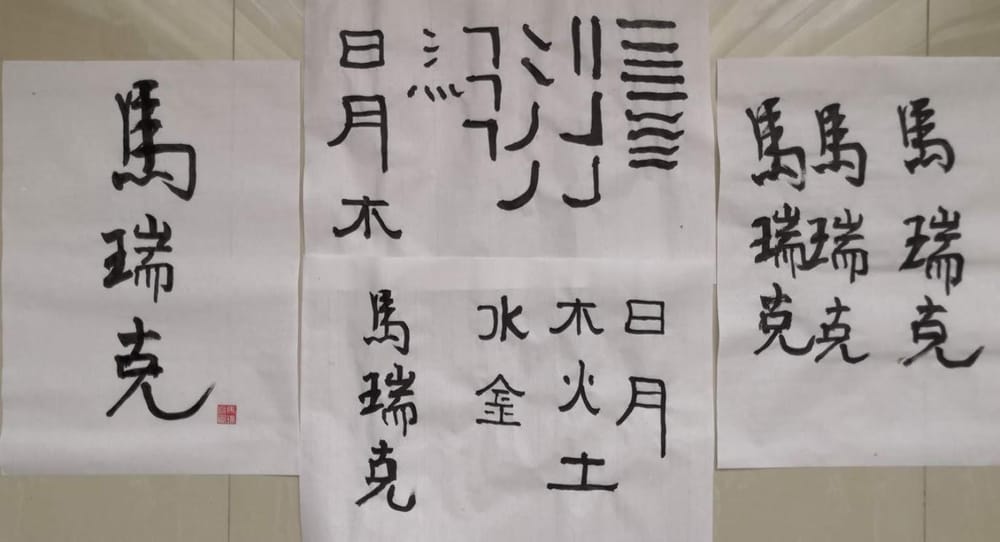 馬瑞克
日月木
日月
木火土
水金
馬瑞克
馬瑞克
馬瑞克
馬瑞克